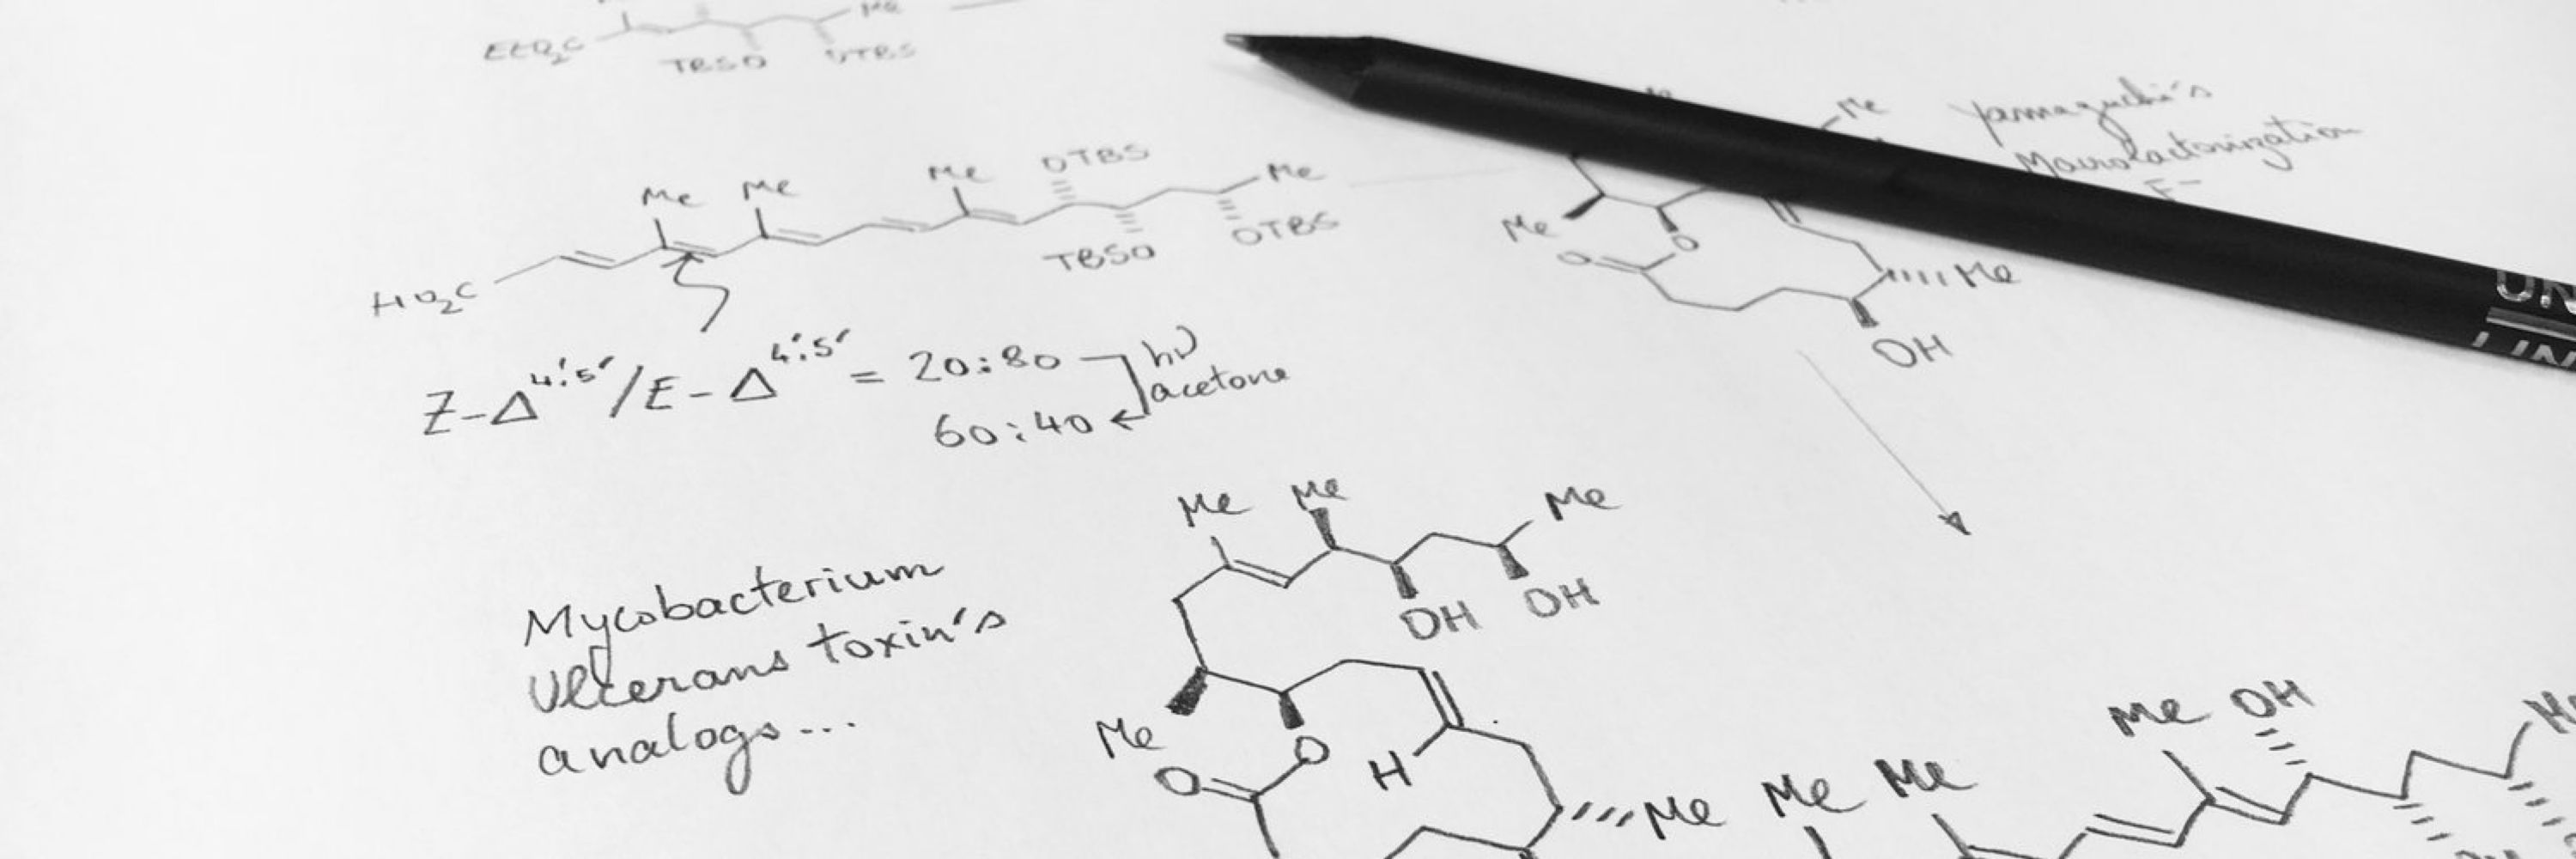 Me
EtO₂C
TBSO OTBS
Me Me Me OTBS Me
HO₂C TBSO OTBS
Me
Yamaguchi's
Macrolactonization
F⁻
Me
O
O
Me
OH
Z-Δ⁴'˙⁵'/E-Δ⁴'˙⁵' = 20:80
hν
acetone
60:40
Mycobacterium
Ulcerans toxin's
analogs...
Me Me Me
OH OH
Me
O
O
H
Me
Me Me Me OH
UN